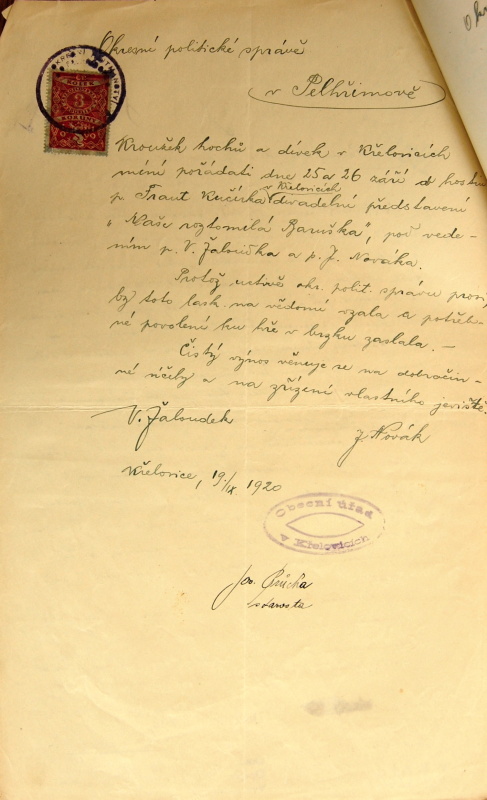 Okresní politické správě
v Pelhřimově
Kroužek hochů a dívek v Křelovicích
míní pořádati dne 25 a 26 září v host.
p. Frant Kučírka v Křelovicích divadelní představení
"Naše roztomilá Baruška", pod vede-
ním p. V. Žaloudka a p. J. Nováka.
Protož uctivě okr. polit. správu prosí,
by toto lask. na vědomí vzala a potřeb-
né povolení ku hře v brzku zaslala. —
Čistý výnos věnuje se na dobročin-
né účely a na zřízení vlastního jeviště.
V. Žaloudek
J. Novák
Křelovice, 19./IX 1920
Obecní úřad
v Křelovicích
Jos. Průcha
starosta
KOLEK
3
KORUNY